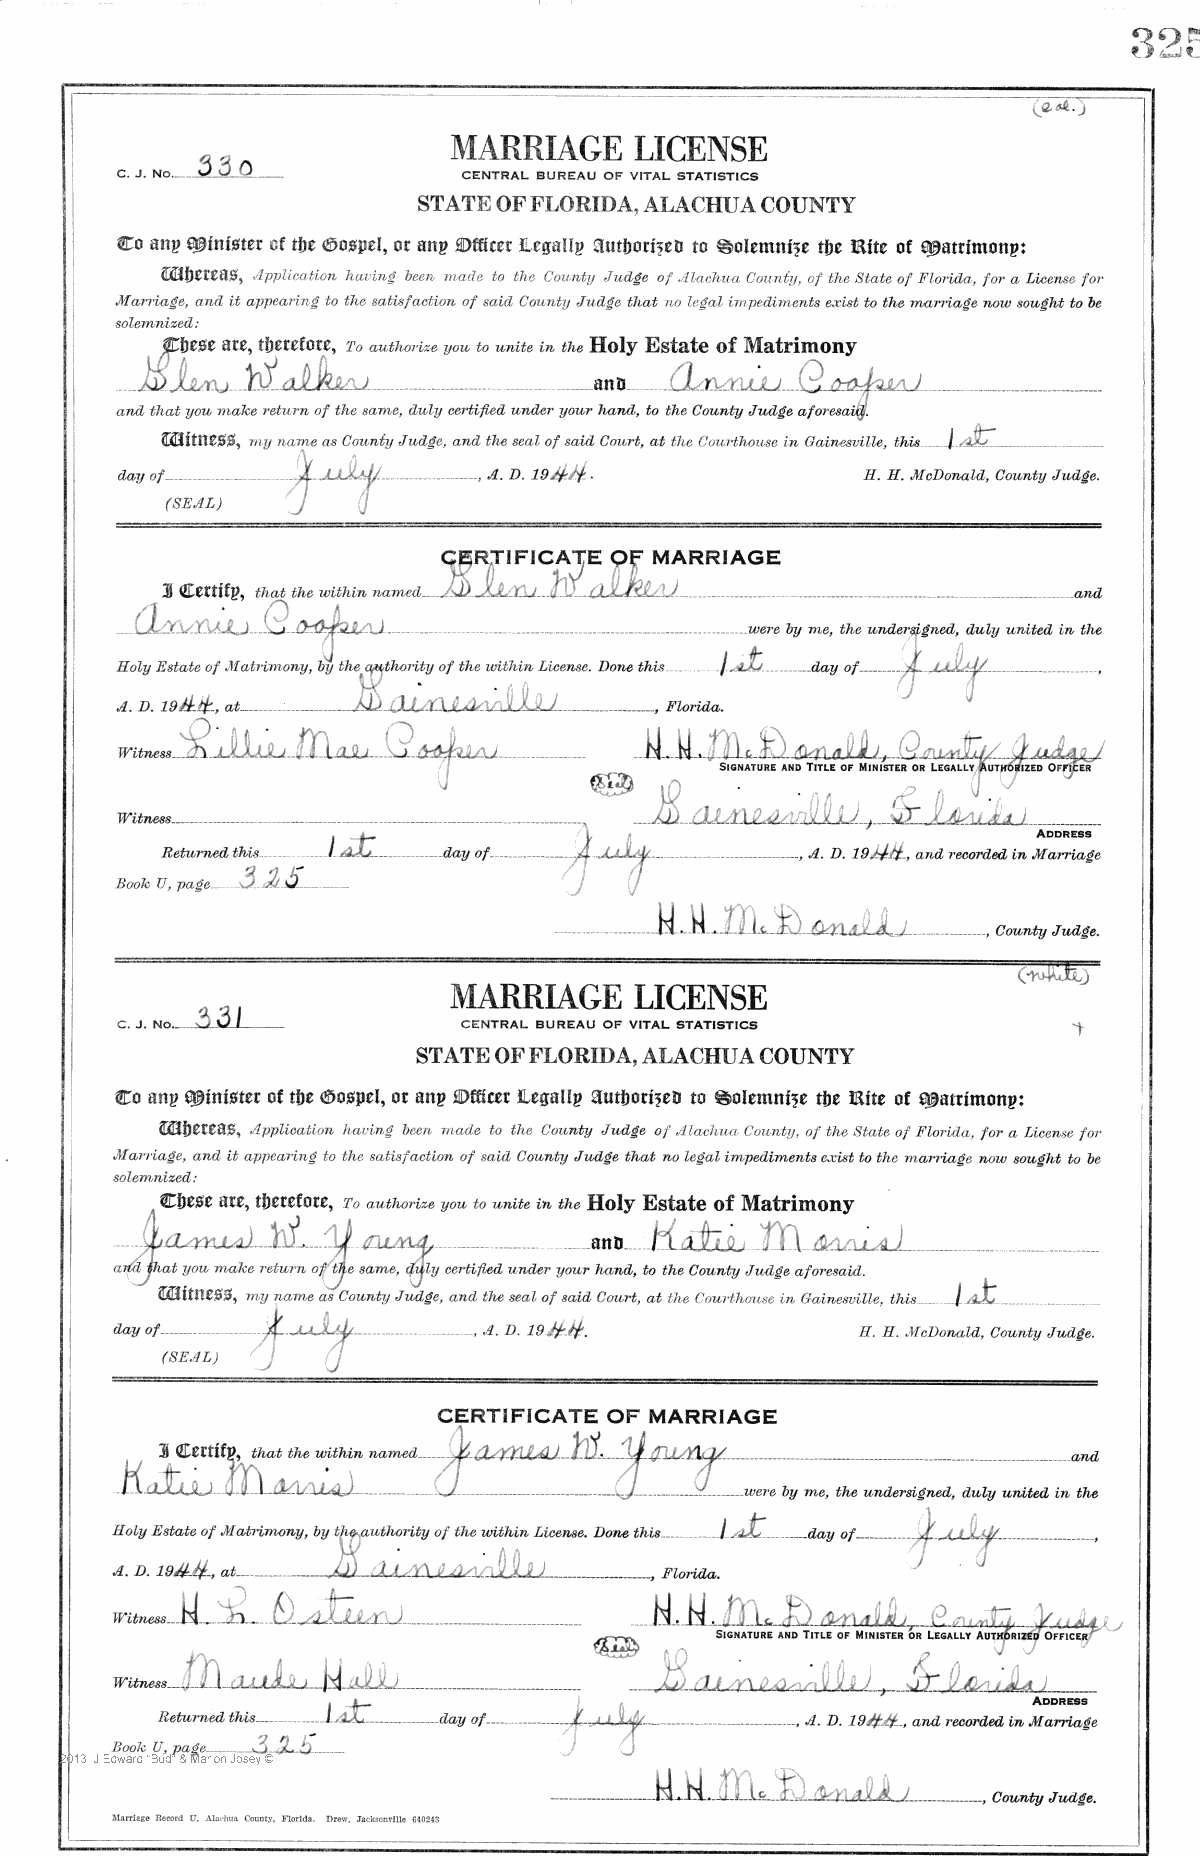 325
(col.)
MARRIAGE LICENSE
C. J. No. 330
CENTRAL BUREAU OF VITAL STATISTICS
STATE OF FLORIDA, ALACHUA COUNTY
To any Minister of the Gospel, or any Officer Legally Authorized to Solemnize the Rite of Matrimony:
Whereas, Application having been made to the County Judge of Alachua County, of the State of Florida, for a License for
Marriage, and it appearing to the satisfaction of said County Judge that no legal impediments exist to the marriage now sought to be
solemnized:
These are, therefore, To authorize you to unite in the Holy Estate of Matrimony
Glen Walker and Annie Cooper
and that you make return of the same, duly certified under your hand, to the County Judge aforesaid.
Witness, my name as County Judge, and the seal of said Court, at the Courthouse in Gainesville, this 1st
day of July, A. D. 1944. H. H. McDonald, County Judge.
(SEAL)
CERTIFICATE OF MARRIAGE
I Certify, that the within named Glen Walker and
Annie Cooper were by me, the undersigned, duly united in the
Holy Estate of Matrimony, by the authority of the within License. Done this 1st day of July,
A. D. 1944, at Gainesville, Florida.
Witness Lillie Mae Cooper H. H. McDonald, County Judge
SIGNATURE AND TITLE OF MINISTER OR LEGALLY AUTHORIZED OFFICER
Seal
Witness Gainesville, Florida
ADDRESS
Returned this 1st day of July, A. D. 1944, and recorded in Marriage
Book U, page 325
H. H. McDonald, County Judge.
(white)
MARRIAGE LICENSE
C. J. No. 331
CENTRAL BUREAU OF VITAL STATISTICS
STATE OF FLORIDA, ALACHUA COUNTY
To any Minister of the Gospel, or any Officer Legally Authorized to Solemnize the Rite of Matrimony:
Whereas, Application having been made to the County Judge of Alachua County, of the State of Florida, for a License for
Marriage, and it appearing to the satisfaction of said County Judge that no legal impediments exist to the marriage now sought to be
solemnized:
These are, therefore, To authorize you to unite in the Holy Estate of Matrimony
James W. Young and Katie Morris
and that you make return of the same, duly certified under your hand, to the County Judge aforesaid.
Witness, my name as County Judge, and the seal of said Court, at the Courthouse in Gainesville, this 1st
day of July, A. D. 1944. H. H. McDonald, County Judge.
(SEAL)
CERTIFICATE OF MARRIAGE
I Certify, that the within named James W. Young and
Katie Morris were by me, the undersigned, duly united in the
Holy Estate of Matrimony, by the authority of the within License. Done this 1st day of July,
A. D. 1944, at Gainesville, Florida.
Witness H. L. Osteen H. H. McDonald, County Judge
SIGNATURE AND TITLE OF MINISTER OR LEGALLY AUTHORIZED OFFICER
Seal
Witness Maude Hall Gainesville, Florida
ADDRESS
Returned this 1st day of July, A. D. 1944, and recorded in Marriage
Book U, page 325
2013 J Edward "Bud" & Marion Josey ©
H. H. McDonald, County Judge.
Marriage Record U, Alachua County, Florida. Drew, Jacksonville 640243